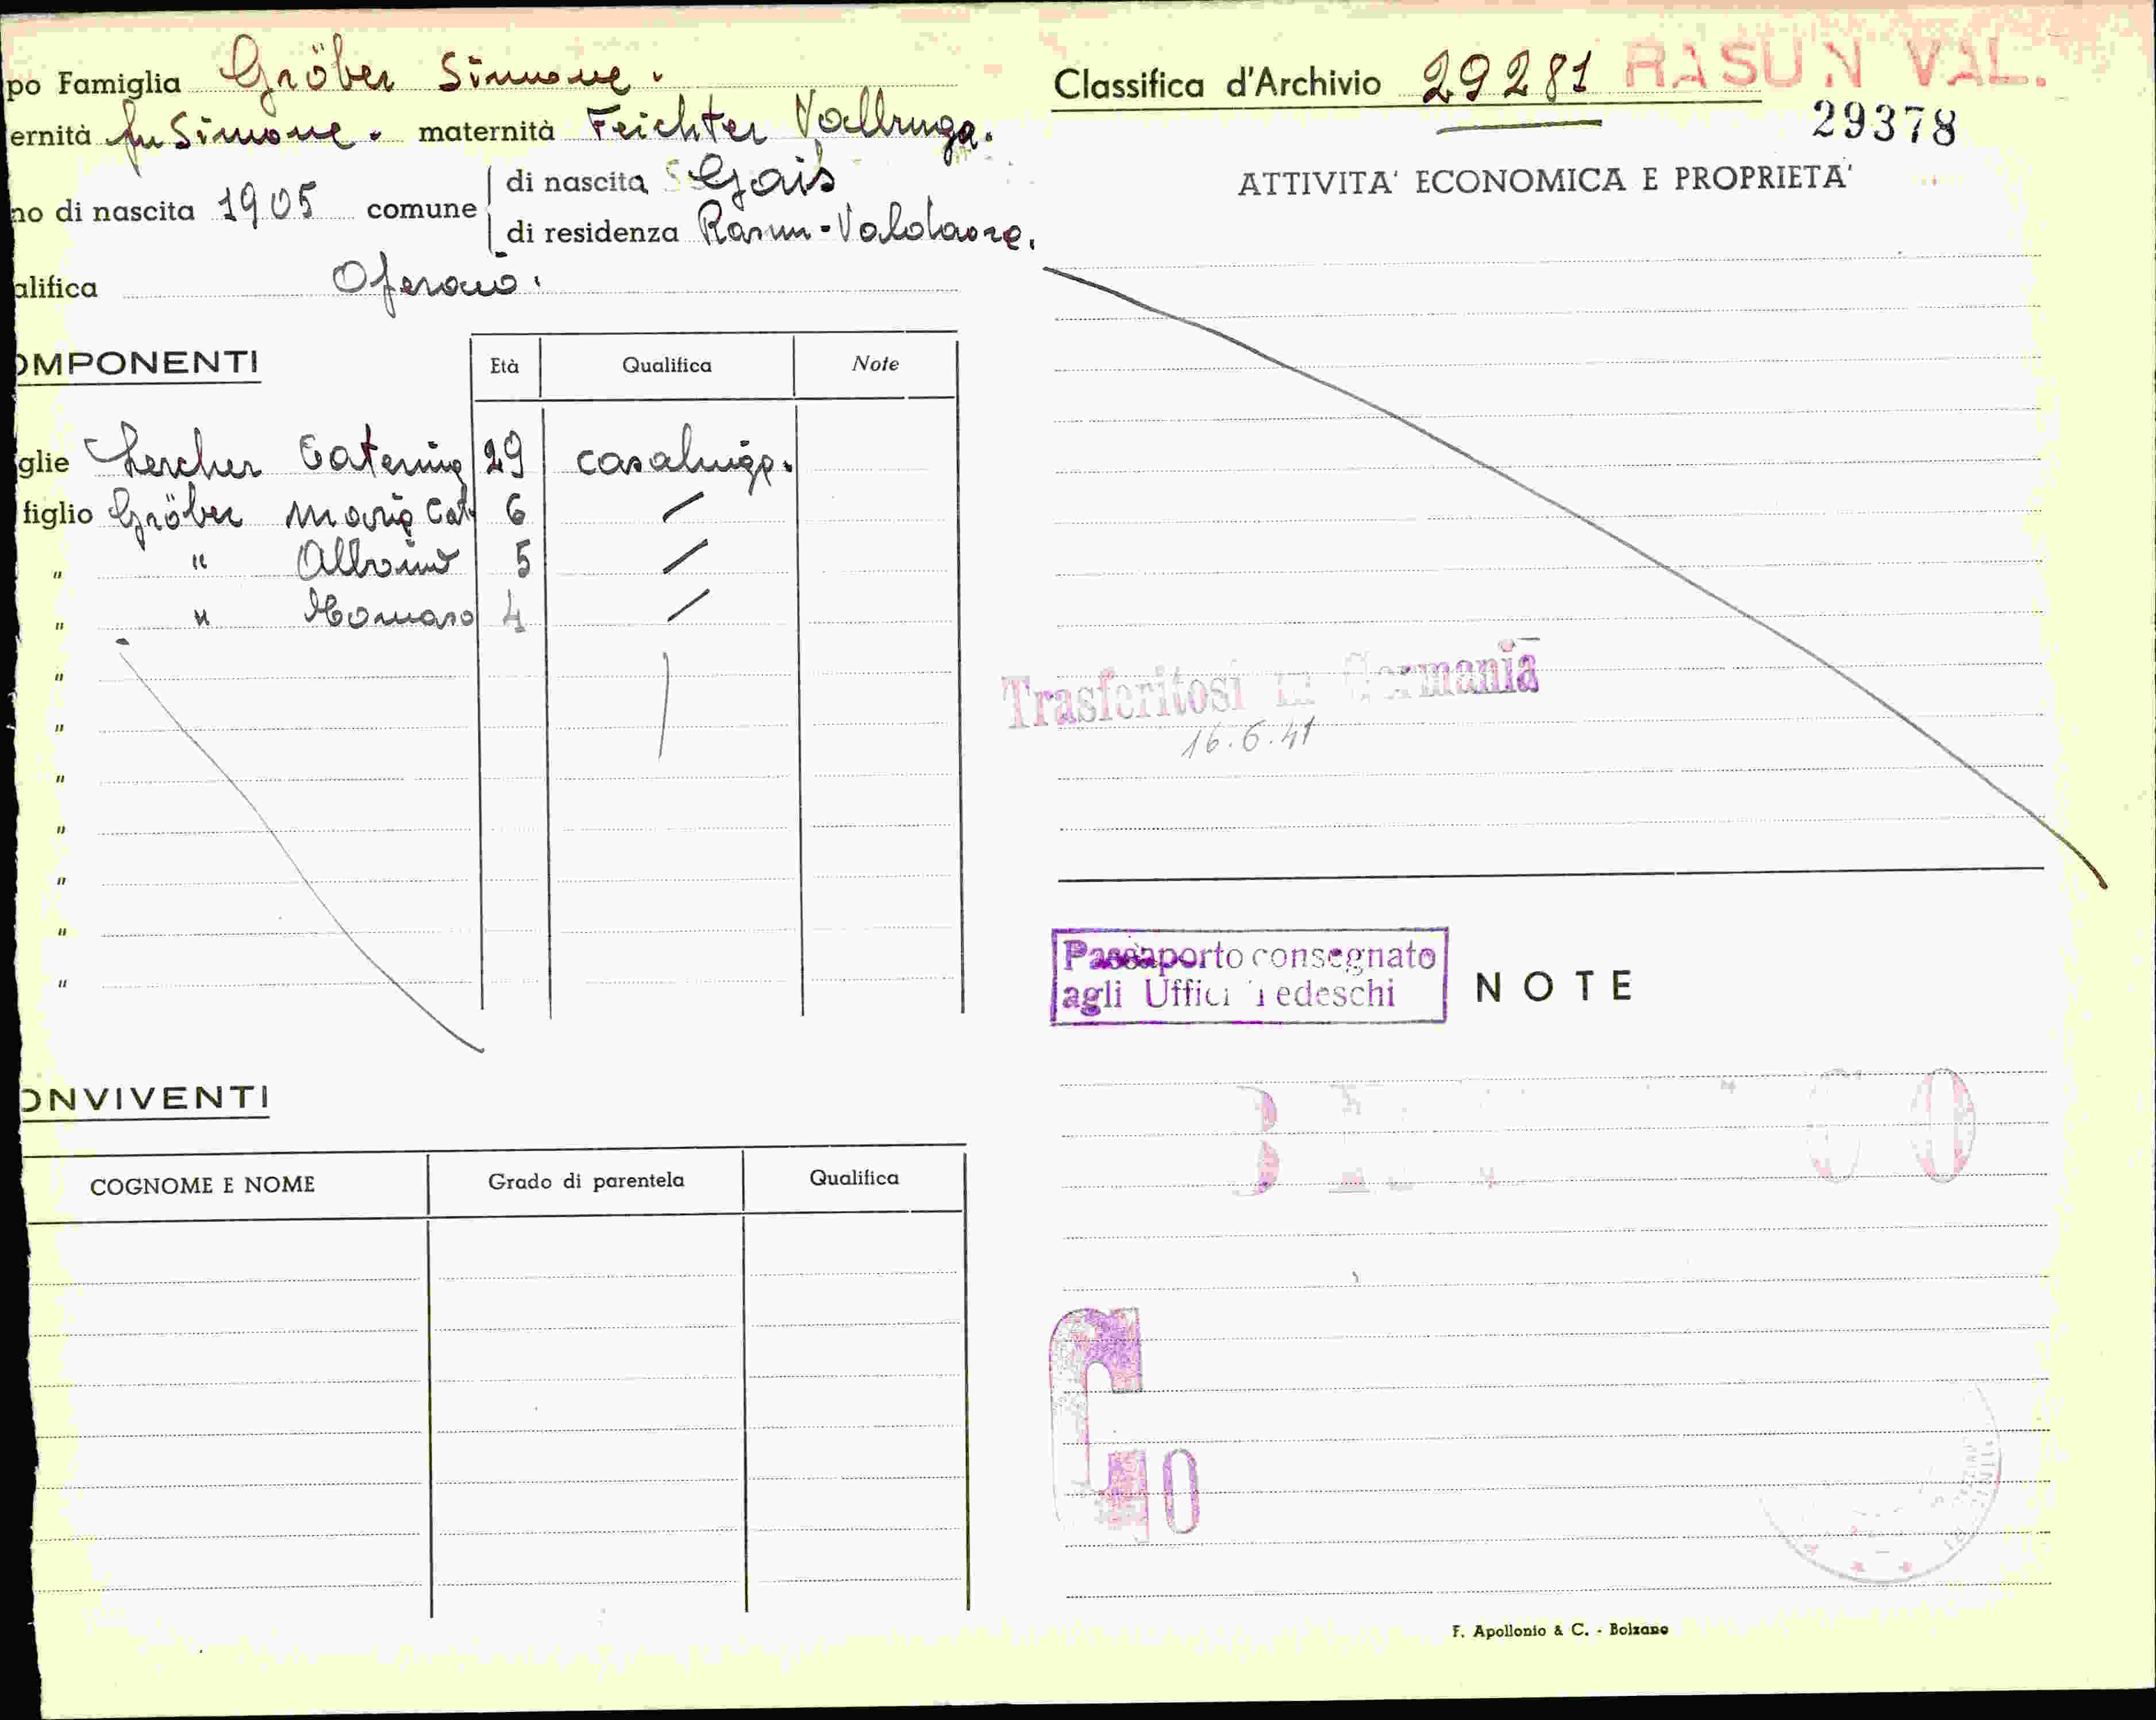 po Famiglia Gröber Simone.
ernità fu Simone. maternità Feichter Valburga.
no di nascita 1905 comune di nascita Gais
di residenza Rasun-Valdaora.
alifica Operaio.
OMPONENTI Età Qualifica Note
glie Lercher Caterina 29 casalinga.
figlio Gröber Maria Cat. 6 /
" " Albino 5 /
" " 4 /
"
"
"
"
"
"
"
ONVIVENTI
COGNOME E NOME Grado di parentela Qualifica
Classifica d'Archivio 29281 RASUN VAL.
29378
ATTIVITA' ECONOMICA E PROPRIETA'
Trasferitosi in Germania
16.6.41
Passaporto consegnato
agli Uffici Tedeschi
NOTE
G
10
F. Apollonio & C. - Bolzano